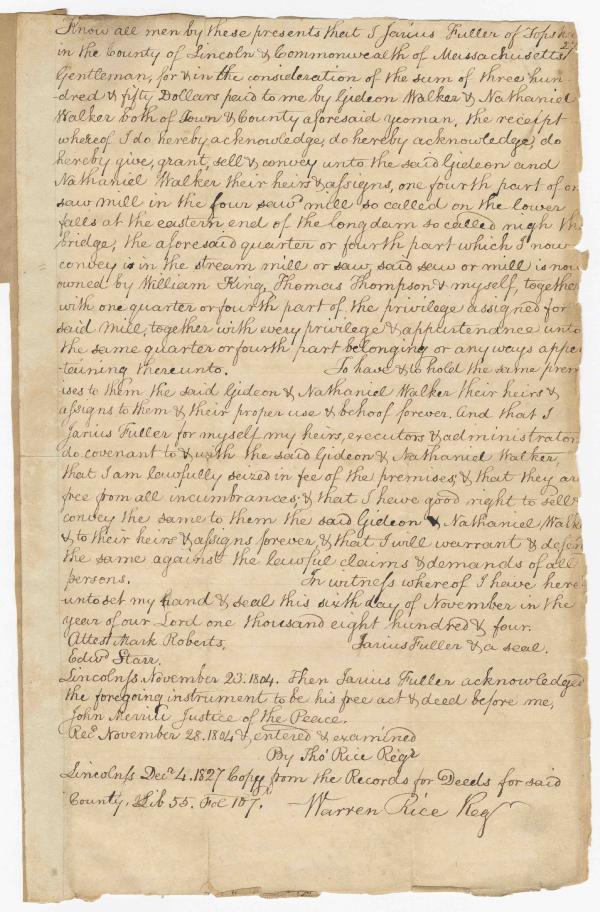 Know all men by these presents that I Jarius Fuller of Topsh
in the County of Lincoln & Commonwealth of Massachusetts
Gentleman, for & in the consideration of the sum of three hun-
dred & fifty Dollars paid to me by Gideon Walker & Nathaniel
Walker both of Town & County aforesaid yeoman, the receipt
whereof I do hereby acknowledge, do hereby acknowledge, do
hereby give, grant, sell & convey unto the said Gideon and
Nathaniel Walker their heirs & assigns, one fourth part of on
saw mill in the four saw mill so called on the lower
falls at the eastern end of the long dam so called nigh th
bridge, the aforesaid quarter or fourth part which I now
convey is in the stream mill or saw, said saw or mill is now
owned by William King, Thomas Thompson & myself, together
with one quarter or fourth part of the privilege assigned for
said mill, together with every privilege & appurtenance unto
the same quarter or fourth part belonging or any ways apper
-taining thereunto. To have & to hold the same prem
ises to them the said Gideon & Nathaniel Walker their heirs &
assigns to them & their proper use & behoof forever. And that I
Jarius Fuller for myself my heirs, executors & administrators
do covenant to & with the said Gideon & Nathaniel Walker,
that I am lawfully seized in fee of the premises, & that they are
free from all incumbrances; & that I have good right to sell &
convey the same to them the said Gideon & Nathaniel Walk
& to their heirs & assigns forever, & that I will warrant & defen
the same against the lawful claims & demands of all
persons. In witness whereof I have here
-unto set my hand & seal this sixth day of November in the
year of our Lord one thousand eight hundred & four.
Attest Mark Roberts, Jarius Fuller & a seal.
Edwd Starr.
Lincolnss November 23. 1804. Then Jarius Fuller acknowledged
the foregoing instrument to be his free act & deed before me,
John Merrill Justice of the Peace.
Recd November 28. 1804 & entered & examined
By Thos Rice Regr
Lincolnss Decr 4. 1827 Copy from the Records for Deeds for said
County. Lib 55. Fol 107.
Warren Rice Regr